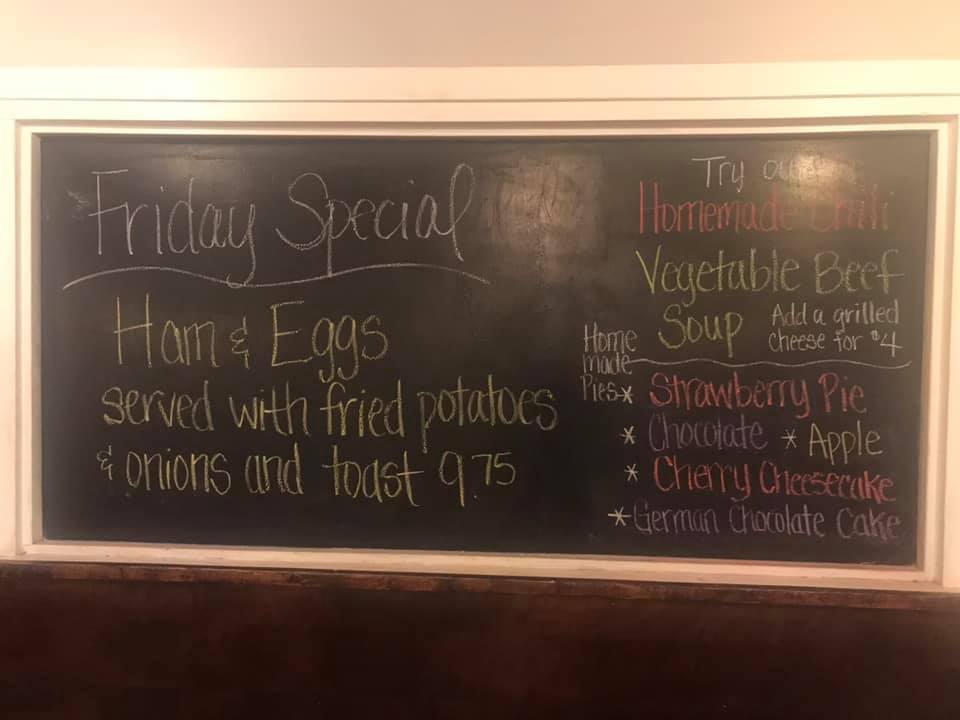 Friday Special
Ham & Eggs
served with fried potatoes
& onions and toast 9.75
Try our
Homemade Chili
Vegetable Beef
Soup
Add a grilled
cheese for $4
Home
made
Pies
* Strawberry Pie
* Chocolate * Apple
* Cherry Cheesecake
* German Chocolate Cake